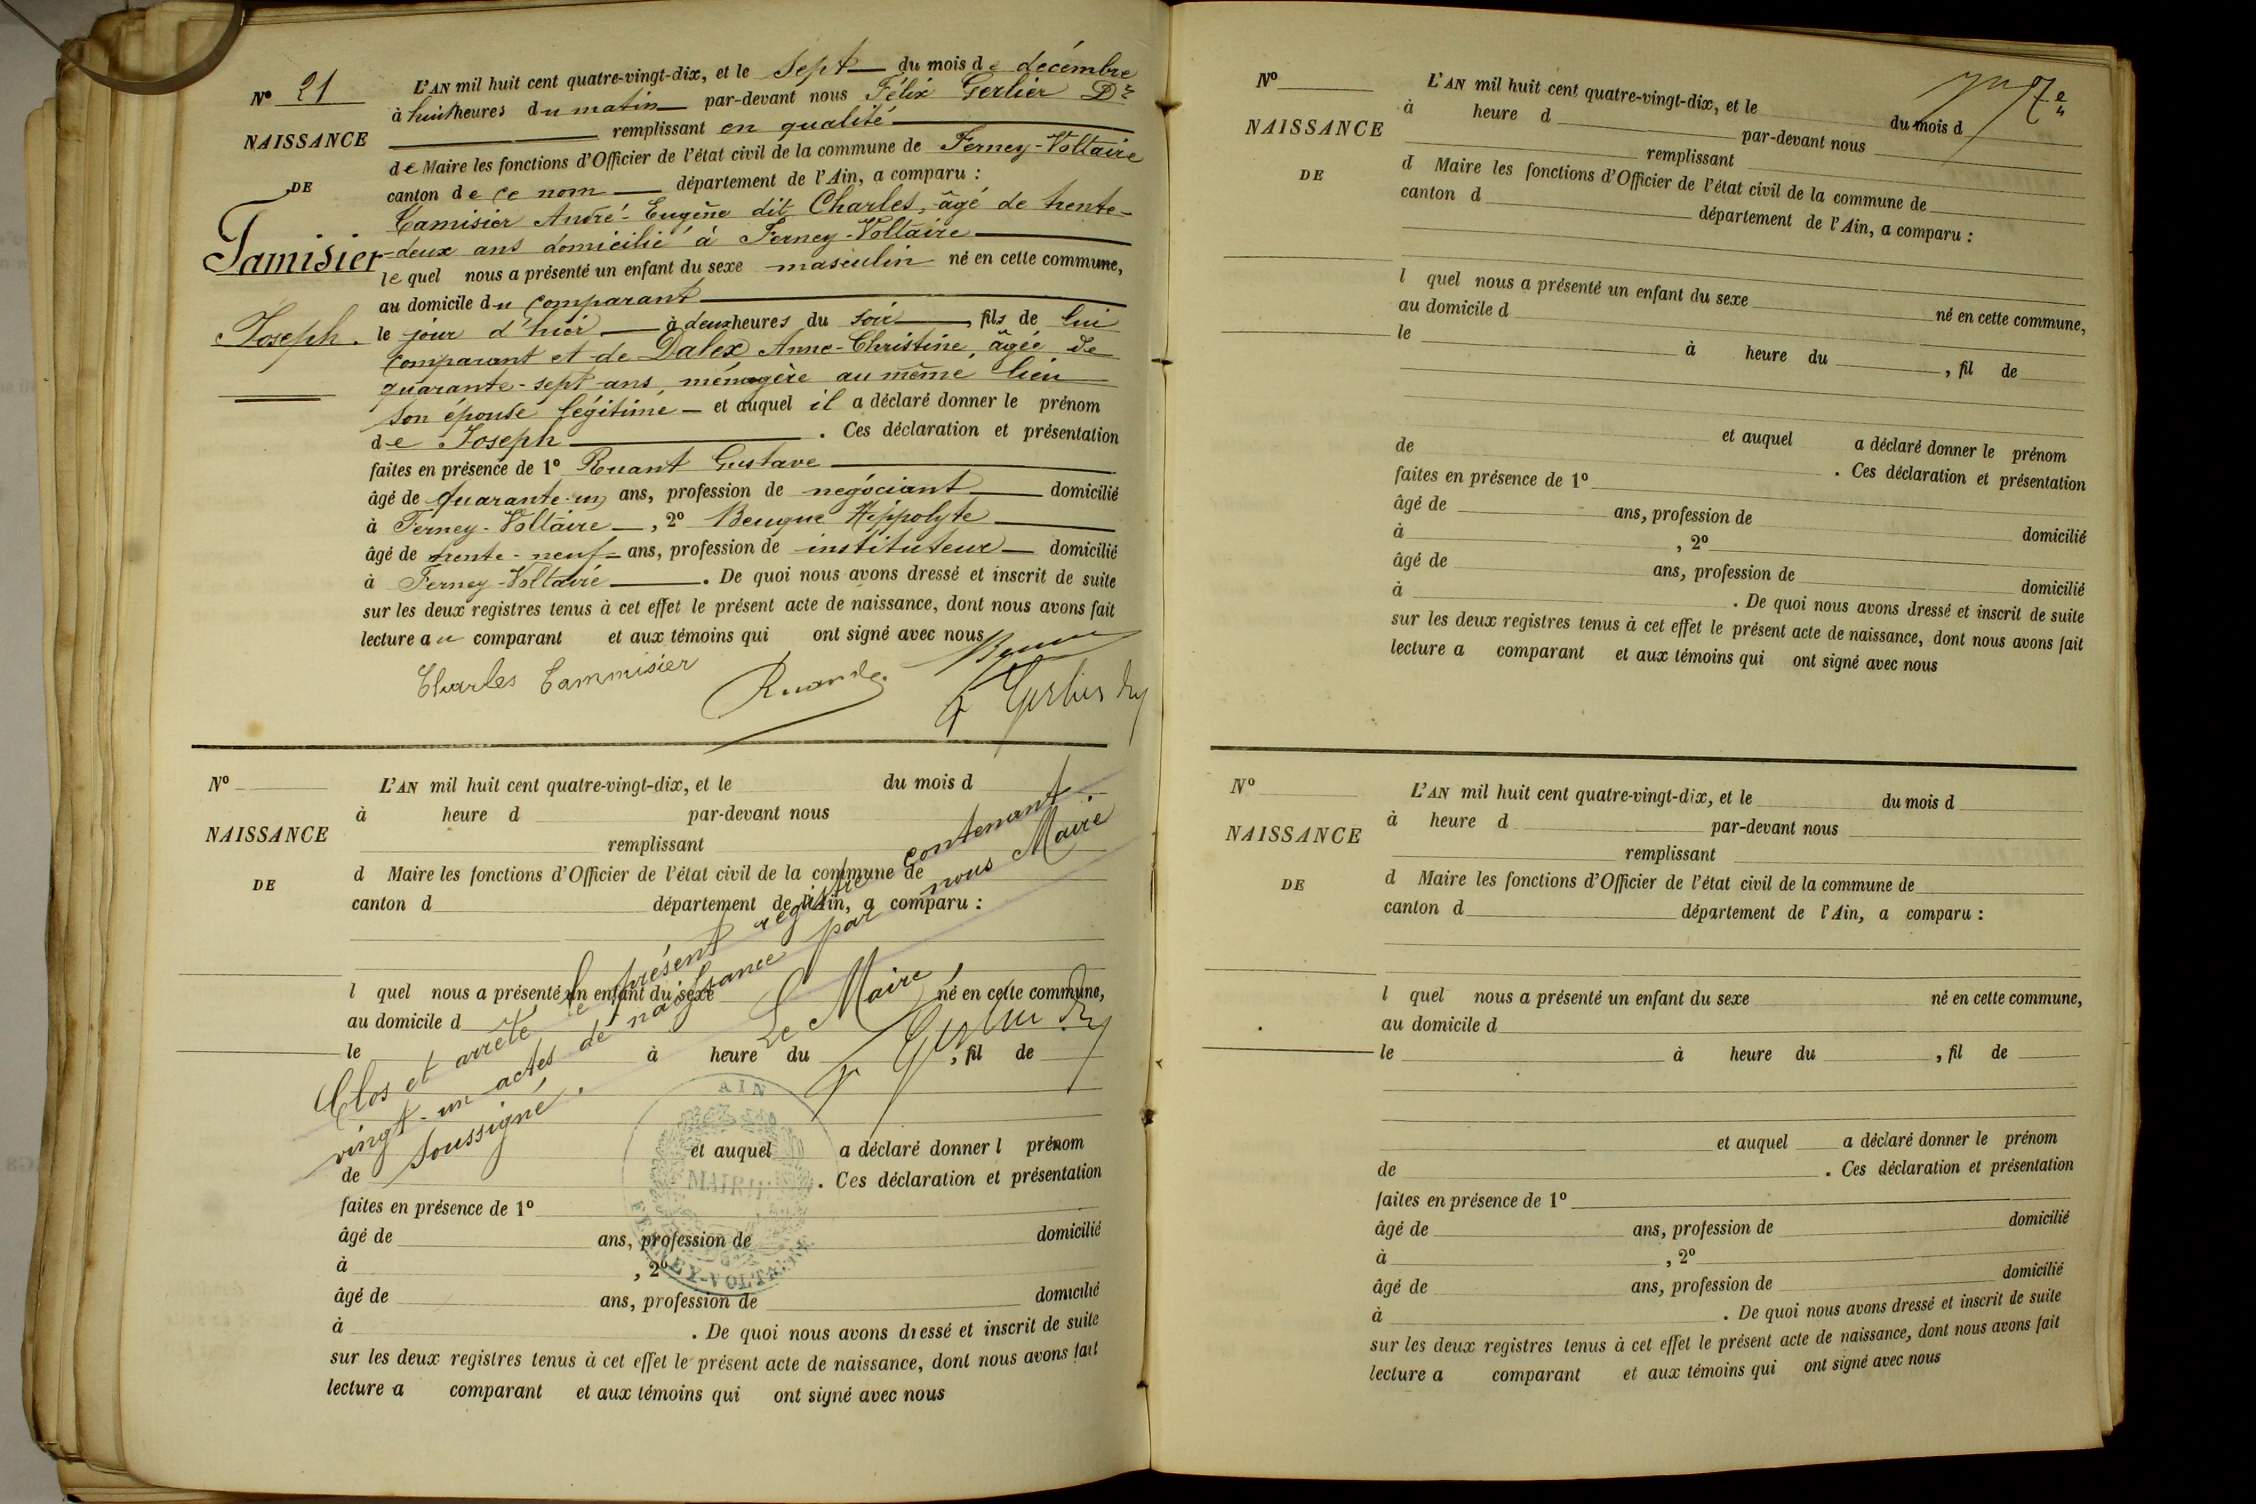 Nº 21
NAISSANCE
DE
Tamisier
Joseph.
L'AN mil huit cent quatre-vingt-dix, et le sept du mois de décembre
à huit heures du matin par-devant nous Félix Gerlier Dr
remplissant en qualité
de Maire les fonctions d'Officier de l'état civil de la commune de Ferney-Voltaire
canton de ce nom département de l'Ain, a comparu :
Camisier André-Eugène dit Charles, âgé de trente-
-deux ans domicilié à Ferney-Voltaire
lequel nous a présenté un enfant du sexe masculin né en cette commune,
au domicile du comparant
le jour d'hier à deux heures du soir, fils de lui
comparant et de Dalex Anne-Christine, âgée de
quarante-sept ans, ménagère au même lieu
son épouse légitime et auquel il a déclaré donner le prénom
de Joseph . Ces déclaration et présentation
faites en présence de 1º Ruant Gustave
âgé de quarante-un ans, profession de négociant domicilié
à Ferney-Voltaire, 2º Beuque Hippolyte
âgé de trente-neuf ans, profession de instituteur domicilié
à Ferney-Voltaire . De quoi nous avons dressé et inscrit de suite
sur les deux registres tenus à cet effet le présent acte de naissance, dont nous avons fait
lecture au comparant et aux témoins qui ont signé avec nous
Charles Tammisier
F Gerlier
Nº
NAISSANCE
DE
L'AN mil huit cent quatre-vingt-dix, et le du mois d
à heure d par-devant nous
remplissant
d Maire les fonctions d'Officier de l'état civil de la commune de
canton d département de l'Ain, a comparu :
l quel nous a présenté un enfant du sexe né en cette commune,
au domicile d
le à heure du , fil de
et auquel a déclaré donner l prénom
de . Ces déclaration et présentation
faites en présence de 1º
âgé de ans, profession de domicilié
à , 2º
âgé de ans, profession de domicilié
à . De quoi nous avons dressé et inscrit de suite
sur les deux registres tenus à cet effet le présent acte de naissance, dont nous avons fait
lecture a comparant et aux témoins qui ont signé avec nous
Clos et arrêté le présent registre contenant
vingt-un actes de naissance par nous Maire
soussigné.
Le Maire,
F Gerlier
AIN
MAIRIE
FERNEY-VOLTAIRE
Nº
NAISSANCE
DE
L'AN mil huit cent quatre-vingt-dix, et le du mois d
à heure d par-devant nous
remplissant
d Maire les fonctions d'Officier de l'état civil de la commune de
canton d département de l'Ain, a comparu :
l quel nous a présenté un enfant du sexe né en cette commune,
au domicile d
le à heure du , fil de
et auquel a déclaré donner le prénom
de . Ces déclaration et présentation
faites en présence de 1º
âgé de ans, profession de domicilié
à , 2º
âgé de ans, profession de domicilié
à . De quoi nous avons dressé et inscrit de suite
sur les deux registres tenus à cet effet le présent acte de naissance, dont nous avons fait
lecture a comparant et aux témoins qui ont signé avec nous
Nº
NAISSANCE
DE
L'AN mil huit cent quatre-vingt-dix, et le du mois d
à heure d par-devant nous
remplissant
d Maire les fonctions d'Officier de l'état civil de la commune de
canton d département de l'Ain, a comparu :
l quel nous a présenté un enfant du sexe né en cette commune,
au domicile d
le à heure du , fil de
et auquel a déclaré donner le prénom
de . Ces déclaration et présentation
faites en présence de 1º
âgé de ans, profession de domicilié
à , 2º
âgé de ans, profession de domicilié
à . De quoi nous avons dressé et inscrit de suite
sur les deux registres tenus à cet effet le présent acte de naissance, dont nous avons fait
lecture a comparant et aux témoins qui ont signé avec nous